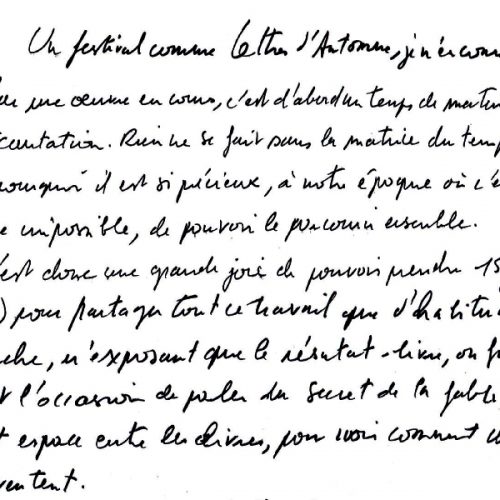 Un festival comme Lettres d'Automne, je n'en conn
une œuvre en cours, c'est d'abord un temps de matur
Rien ne se fait sans la matrice du temp
ourquoi il est si précieux, à notre époque où c'e
e impossible, de pouvoir le parcourir ensemble.
'est donc une grande joie de pouvoir prendre 15
) pour partager tout ce travail que d'habitu
che, n'exposant que le résultat - livre, ou f
l'occasion de parler du secret de la fable
t espace entre les livres, pour voir comment
ventent.